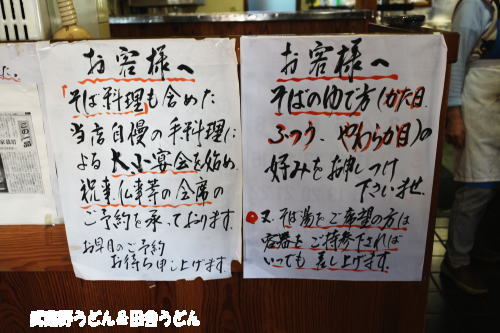 お客様へ
「そば料理」も含めた
当店自慢の手料理に
よる大小宴会を始め、
祝事、仏事等の会席の
ご予約を承っております。
お早目のご予約
お待ち申し上げます。
お客様へ
そばのゆで方(かた目、
ふつう、やわらか目)の
好みをお申しつけ
下さいませ、
又、そば湯をご希望の方は
容器をご持参下されば
いつでも差し上げます。
武蔵野うどん&田舎うどん